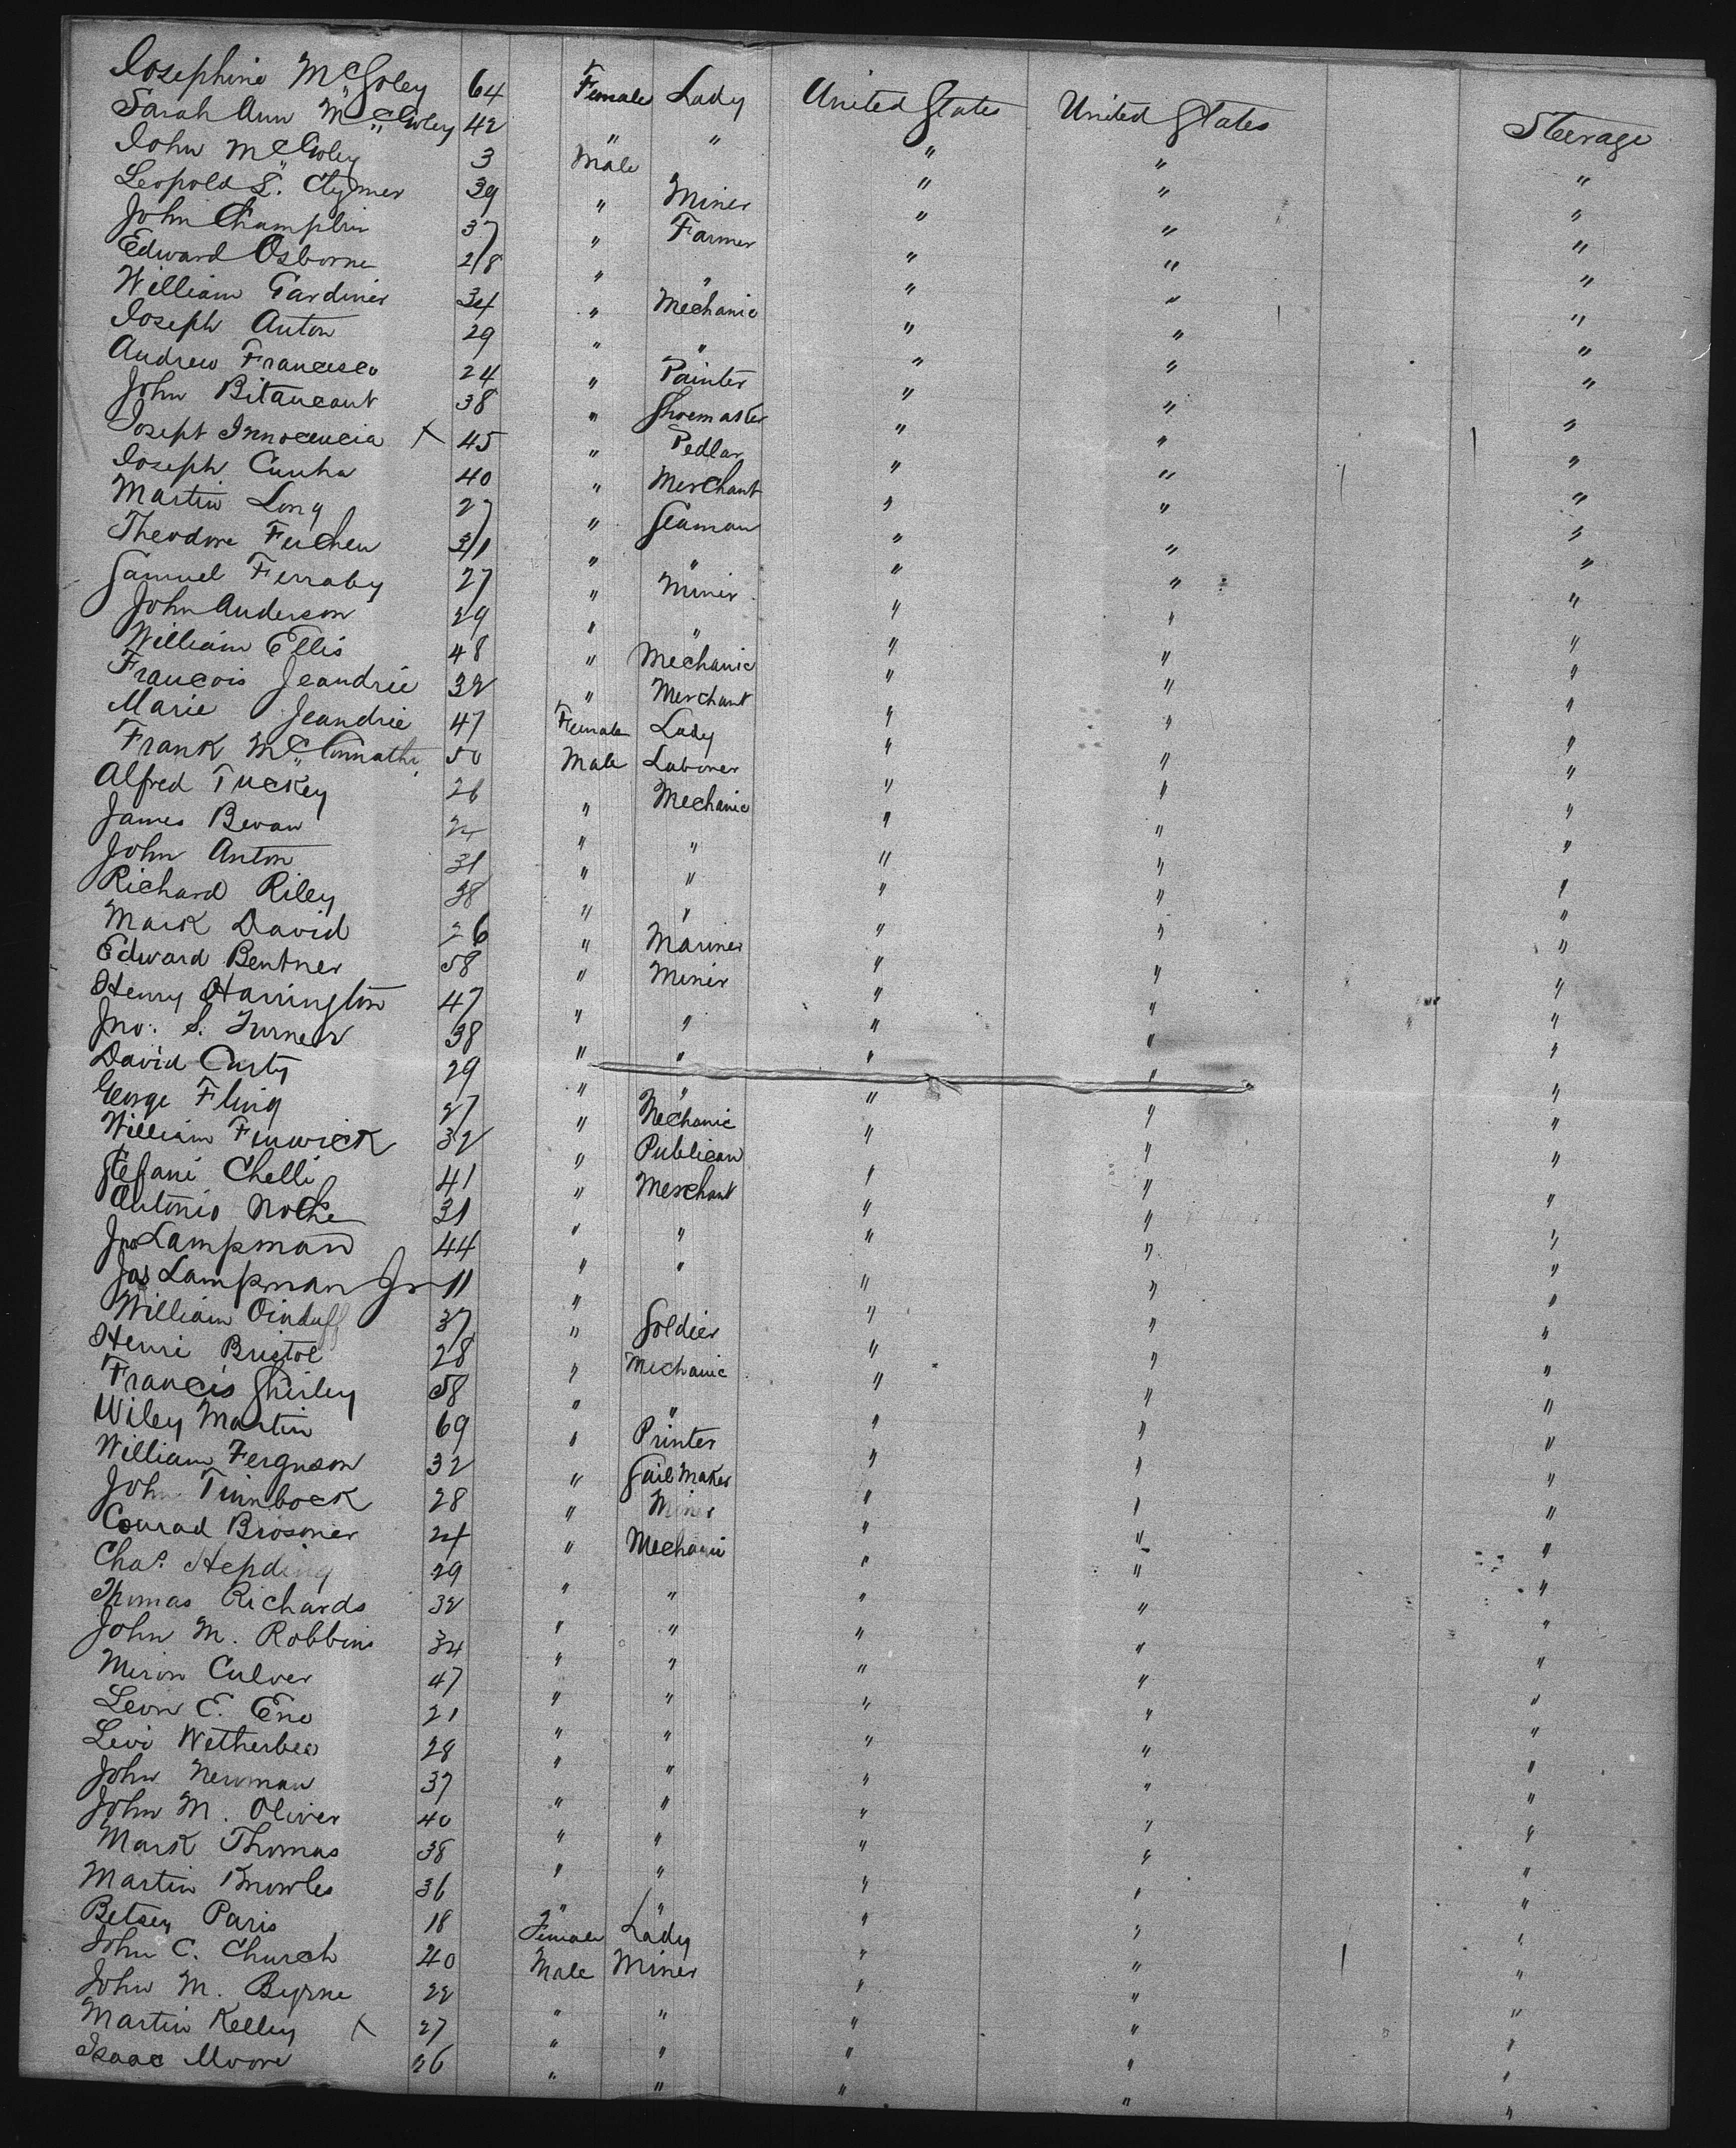 Josephine McGoley 64 Female Lady United States United States Steerage
Sarah Ann McGoley 42 " " " " "
John McGoley 3 Male " " "
Leopold S. Clymer 39 " Miner " " "
John Champlin 37 " Farmer " " "
Edward Osborne 28 " " " " "
William Gardiner 34 " Mechanic " " "
Joseph Anton 29 " " " " "
Andrew Francisco 24 " Painter " " "
John Bitancourt 38 " Shoemaker " " "
Joseph Innocencia X 45 " Pedlar " " "
Joseph Cunha 40 " Merchant " " "
Martin Long 27 " Seaman " " "
Theodore 31 " " " " "
Samuel Ferraby 27 " Miner " " "
John Anderson 29 " " " " "
William Ellis 48 " Mechanic " " "
Francois Jeandrie 32 " Merchant " " "
Marie Jeandrie 47 Female Lady " " "
Frank 50 Male Laborer " " "
Alfred Tuckey 26 " Mechanic " " "
James Bevan " " " " "
John Anton 31 " " " " "
Richard Riley 38 " " " " "
Mark David 26 " Mariner " " "
Edward Bentner 58 " Miner " " "
Henry Harrington 47 " " " " "
Jno. S. Turner 38 " " " " "
David Carty 29 " " " " "
George Fling 27 " Mechanic " " "
William Finwick 32 " Publican " " "
Stefani Chelli 41 " Merchant " " "
Antonio Nothe 31 " " " " "
Jno Lampman 44 " " " " "
Jas Lampman Jr 11 " " " "
William 37 " Soldier " " "
Henri Bristol 28 " Mechanic " " "
Francis Shirley 58 " " " " "
Wiley Martin 69 " Printer " " "
William Ferguson 32 " Sail Maker " " "
John Tinnbock 28 " Miner " " "
Conrad Brosomer 24 " Mechanic " " "
Chas. Hepding 29 " " " " "
Thomas Richards 32 " " " " "
John M. Robbins 34 " " " " "
Miron Culver 47 " " " " "
Leon E. Eno 21 " " " " "
Levi Wetherbee 28 " " " " "
John Newman 37 " " " " "
John M. Oliver 40 " " " " "
Mark Thomas 38 " " " " "
Martin Knowles 36 " " " " "
Betsey Paris 18 Female Lady " " "
John C. Church 40 Male Miner " " "
John M. Byrne 22 " " " " "
Martin Kelley X 27 " " " " "
Isaac Moore 26 " " " " "